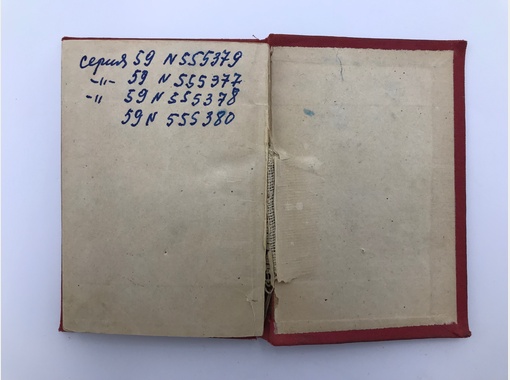 серия 59 N 555379
-"- 59 N 555377
-" 59 N 555378
59 N 555380